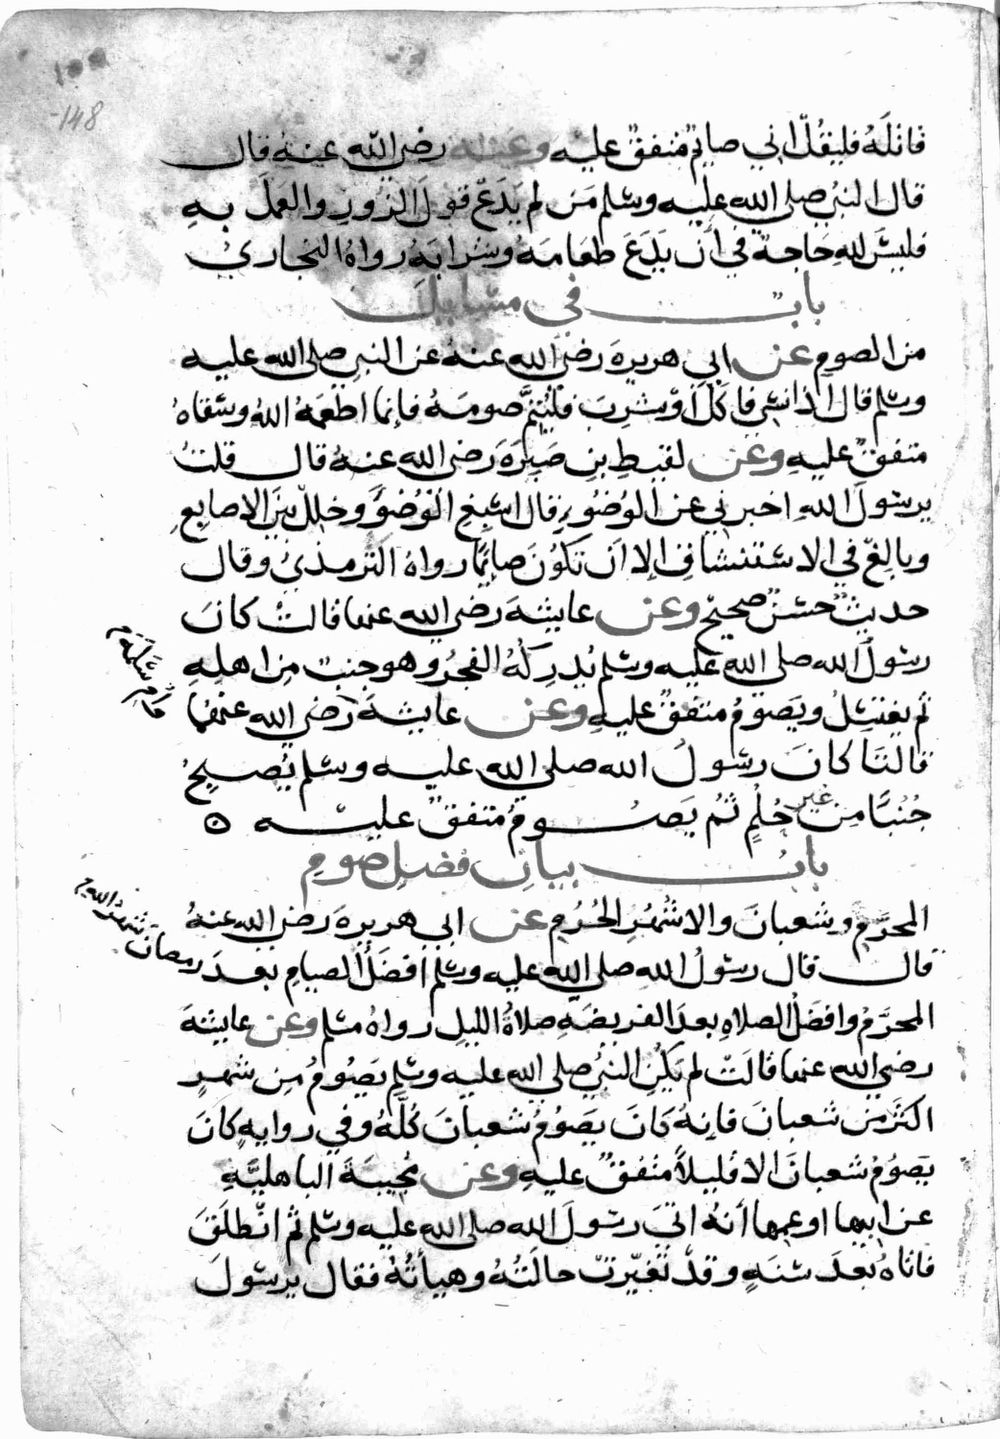 148
قاتله فليقل اني صايم متفق عليه وعنه رضي الله عنه قال
قال النبي صلى الله عليه وسلم من لم يدع قول الزور والعمل به
فليس لله حاجة في أن يدع طعامه وشرابه رواه البخاري
باب في مسايل
من الصوم عن ابي هريرة رضي الله عنه عن النبي صلى الله عليه
وسلم قال اذا نسي فاكل او شرب فليتم صومه فإنما اطعمه الله وسقاه
متفق عليه وعن لقيط بن صبرة رضي الله عنه قال قلت
يرسول الله اخبرني عن الوضوء قال اسبغ الوضوء وخلل بين الاصابع
وبالغ في الاستنشاق إلا ان تكون صائما رواه الترمذي وقال
حديث حسن صحيح وعن عايشة رضي الله عنها قالت كان
رسول الله صلى الله عليه وسلم يدركه الفجر وهو جنب من اهله
ثم يغتسل ويصوم متفق عليه وعن عايشة رضي الله عنهما
وام سلمة م
قالتا كان رسول الله صلى الله عليه وسلم يصبح
جنبا من غير حلم ثم يصوم متفق عليه ه
باب بيان فضل صوم
المحرم وشعبان والاشهر الحرم عن ابي هريرة رضي الله عنه
قال قال رسول الله صلى الله عليه وسلم افضل الصيام بعد رمضان شهر الله م
المحرم وافضل الصلاه بعد الفريضه صلاة الليل رواه مسلم وعن عايشة
رضي الله عنها قالت لم يكن النبي صلى الله عليه وسلم يصوم من شهر
اكثر من شعبان فإنه كان يصوم شعبان كله وفي روايه كان
يصوم شعبان الا قليلا متفق عليه وعن مجيبة الباهلية
عن ابيها او عمها أنه اتى رسول الله صلى الله عليه وسلم ثم انطلق
فاتاه بعد سنة وقد تغيرت حالته وهيأته فقال يرسول